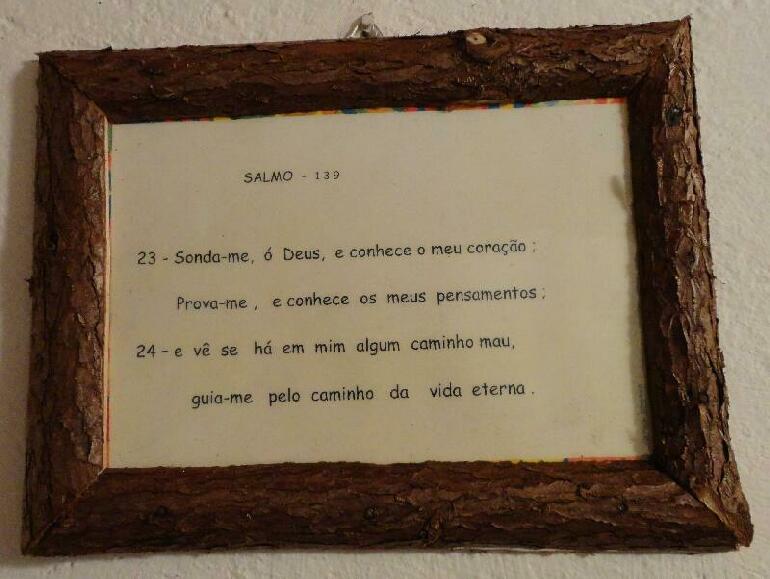 SALMO - 139
23 - Sonda-me, ó Deus, e conhece o meu coração;
Prova-me, e conhece os meus pensamentos;
24 - e vê se há em mim algum caminho mau,
guia-me pelo caminho da vida eterna.